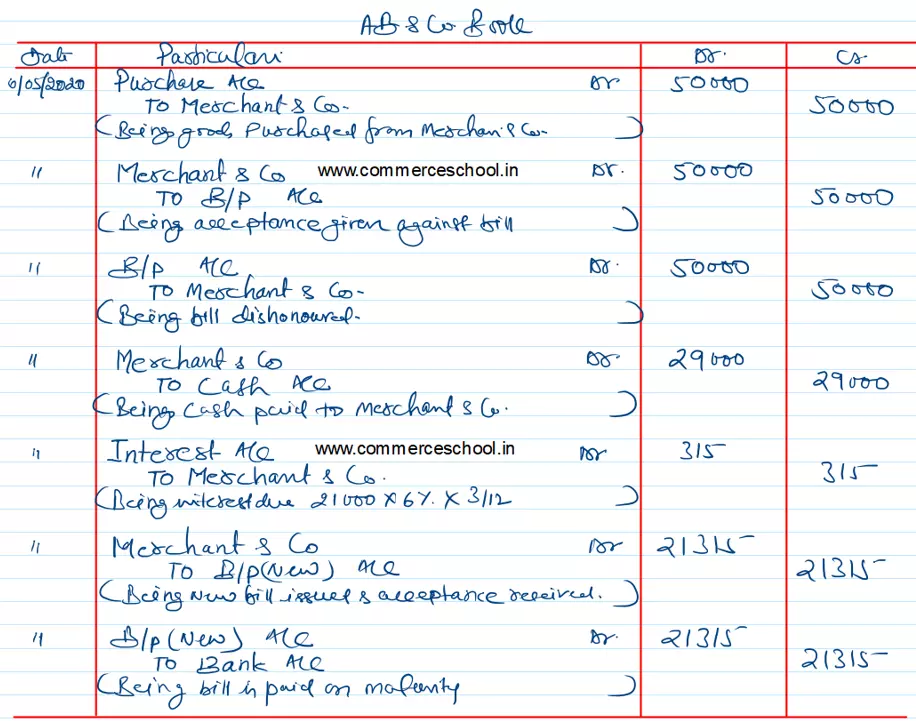 AB & Co. Book
Date Particulars Dr. Cr.
6/05/2020 Purchase A/c Dr 50000
To Merchant & Co. 50000
(Being goods Purchased from Merchant & Co. )
" Merchant & Co www.commerceschool.in Dr. 50000
To B/p A/c 50000
(Being acceptance given against bill )
" B/p A/c Dr. 50000
To Merchant & Co. 50000
(Being bill dishonoured. )
" Merchant & Co Dr. 29000
To Cash A/c 29000
(Being Cash paid to Merchant & Co. )
" Interest A/c www.commerceschool.in Dr 315
To Merchant & Co. 315
(Being interest due 21000 x 6% x 3/12 )
" Merchant & Co Dr 21315
To B/p (New) A/c 21315
(Being New bill issued & acceptance received. )
" B/p (New) A/c Dr. 21315
To Bank A/c 21315
(Being bill is paid on maturity )